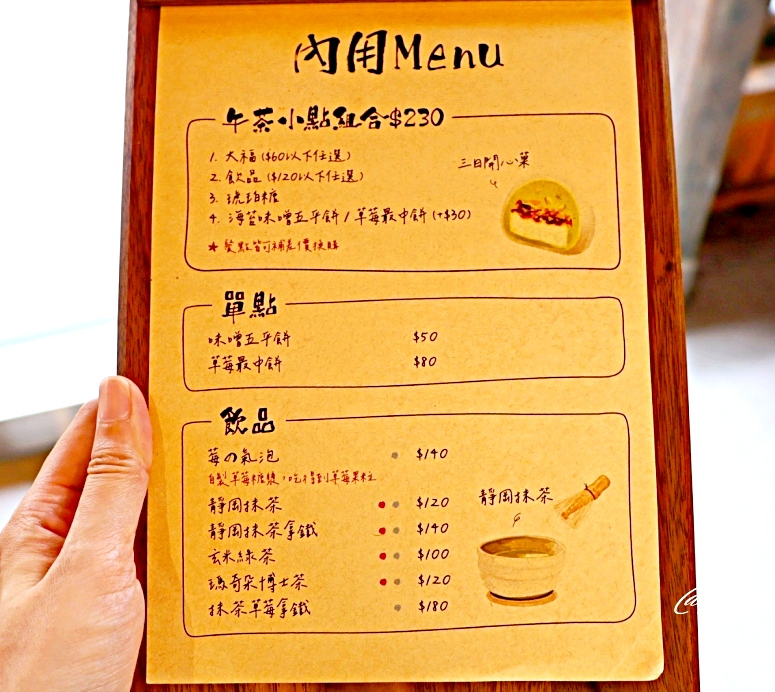 內用Menu
午茶小點組合$230
1. 大福 ($60以下任選)
2. 飲品 ($120以下任選)
3. 琥珀糖
4. 海苔味噌五平餅 / 草莓最中餅 (+$30)
★ 餐點皆可補差價換購
三日開心菓
單點
味噌五平餅 $50
草莓最中餅 $80
飲品
莓の氣泡 $140
自製草莓糖漿,吃得到草莓果粒
靜岡抹茶 $120
靜岡抹茶拿鐵 $140
玄米綠茶 $100
瑪奇朵博士茶 $120
抹茶草莓拿鐵 $180
靜岡抹茶